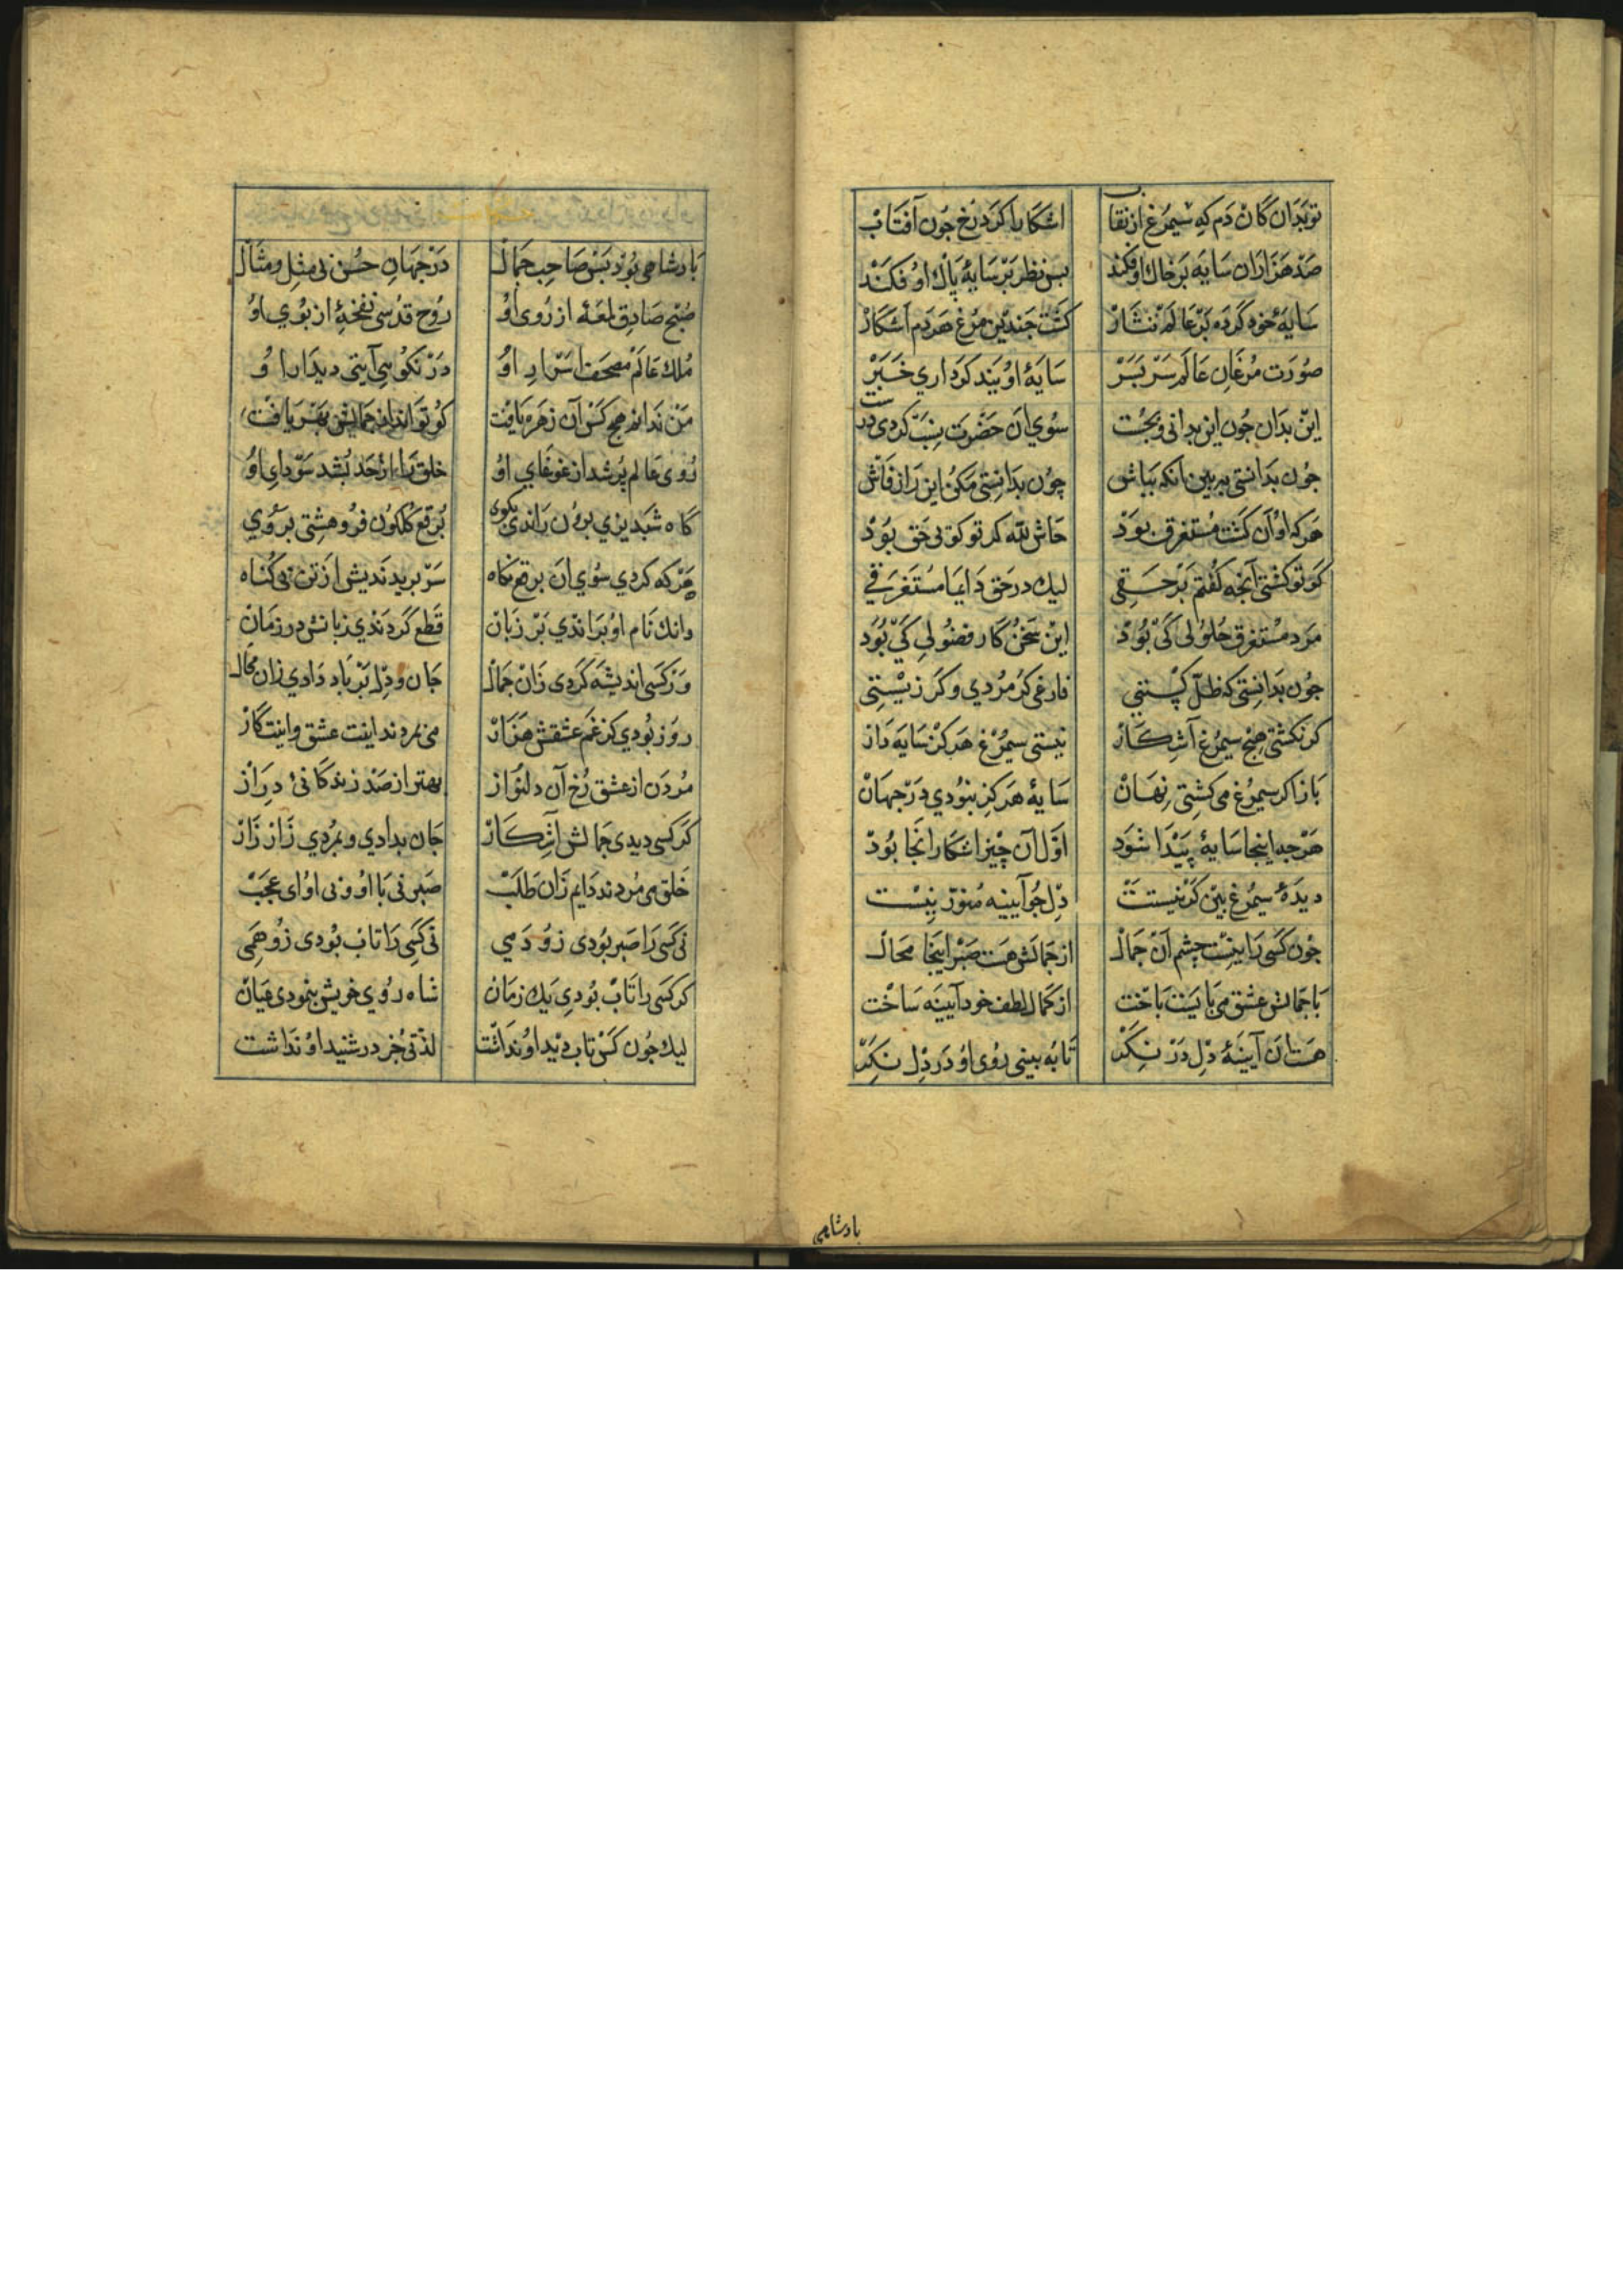 تو بدان کان دم که سیمرغ از نقاب اشکارا کرد رخ جون آفتاب
صد هزاران سایه بر خاک او فکند بس نظر بر سایۀ پاک او فکند
سایه خود کرده بر عالم نثار کشت جندین مرغ هر دم اشکار
صورت مرغان عالم سر بسر سایۀ او بیند کرداری خبر
این بدان جون این بدانی و بجست سوی ان حضرت نسبت کردی درست
جون بدانستی به بین انکه بباش چون بدانستی مکن این راز فاش
هر که او آن کشت مستغرق بود حاش لله کر تو کوئی حق بود
کو تو کشتی آنجه کفتم بر حقی لیک در حق دایما مستغرقی
مرد مستغرق حلولی کی بود این سخن کار فضولی کی بود
جون بدانستی که ظل کیستی فارغی کر مردی و کر زیستی
کر نکشتی هیج سیمرغ آشکار نیستی سیمرغ هرکز سایه دار
باز اکر سیمرغ می کشتی نهان سایۀ هرکز نبودی در جهان
هر جه اینجا سایۀ پیدا شود اول آن چیز اشکار انجا بود
دیدۀ سیمرغ بین کر نیستت دل جو آیینه منور نیست
جون کسی را نیست جشم آن جمال از جمالش هست صبر اینجا محال
با جمالش عشق می بایست باخت از کمال لطف خود آیینه ساخت
هست آن آیینۀ دل در دل نکر تا به بینی روی او در دل نکر
بادشاهی
بادشاهی بود بس صاحب جمال در جهان حسن بی مثل و مثال
صبح صادق لمعۀ از روی او روح قدسی نفخۀ از بوی او
ملک عالم مصحف اسرار او در نکویی آیتی دیدار او
من ندانم هیج کس آن زهره یافت کو تواند از جمالش بهر یافت
روی عالم پر شد از غوغای او خلق را از حد بشد سودای او
کاه شبدیزی برون راندی بکوی برقع کلکون فرو هشتی بروی
هر که کردی سوی ان برقع نکاه سر بریدندیش از تن بی کناه
وانک نام او براندی بر زبان قطع کردندی زبانش در زمان
ور کسی اندیشه کردی زان جمال جان و دل بر باد دادی زان محال
روز بودی کز غم عشقش هزار می بمردند اینت عشق و اینت کار
مردن از عشق رخ آن دلنواز بهتر از صد زندکانئ دراز
کر کسی دیدی جمالش آشکار جان بدادی و بمردی زار زار
خلق می مردند دایم زان طلب صبر نی با او و نی او ای عجب
نی کسی را صبر بودی زو دمی نی کسی را تاب بودی زو همی
کر کسی را تاب بودی یک زمان شاه روی خویش بنمودی عیان
لیک جون کس تاب دید او نداشت لذتی جز در شنید او نداشت